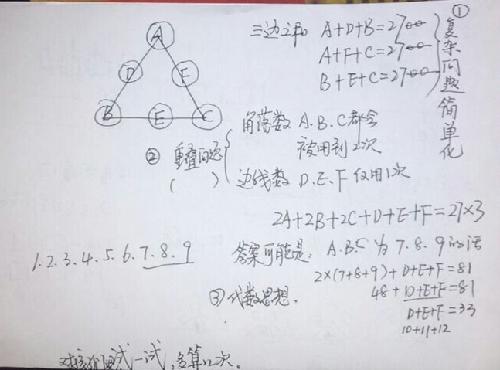 ①
复杂问题简单化
三边之和 A+D+B=2700
A+F+C=2700
B+E+C=2700
A
D
F
B
E
C
② 重叠问题
( )
角落数 A.B.C都会
被用到2次
边线数 D.E.F 仅用1次
2A+2B+2C+D+E+F=27×3
1.2.3.4.5.6.7.8.9
答案可能是: A.B.C 为 7.8.9 的话
2×(7+8+9)+D+E+F=81
48+D+E+F=81
D+E+F=33
10+11+12
③代数思想.
试一试